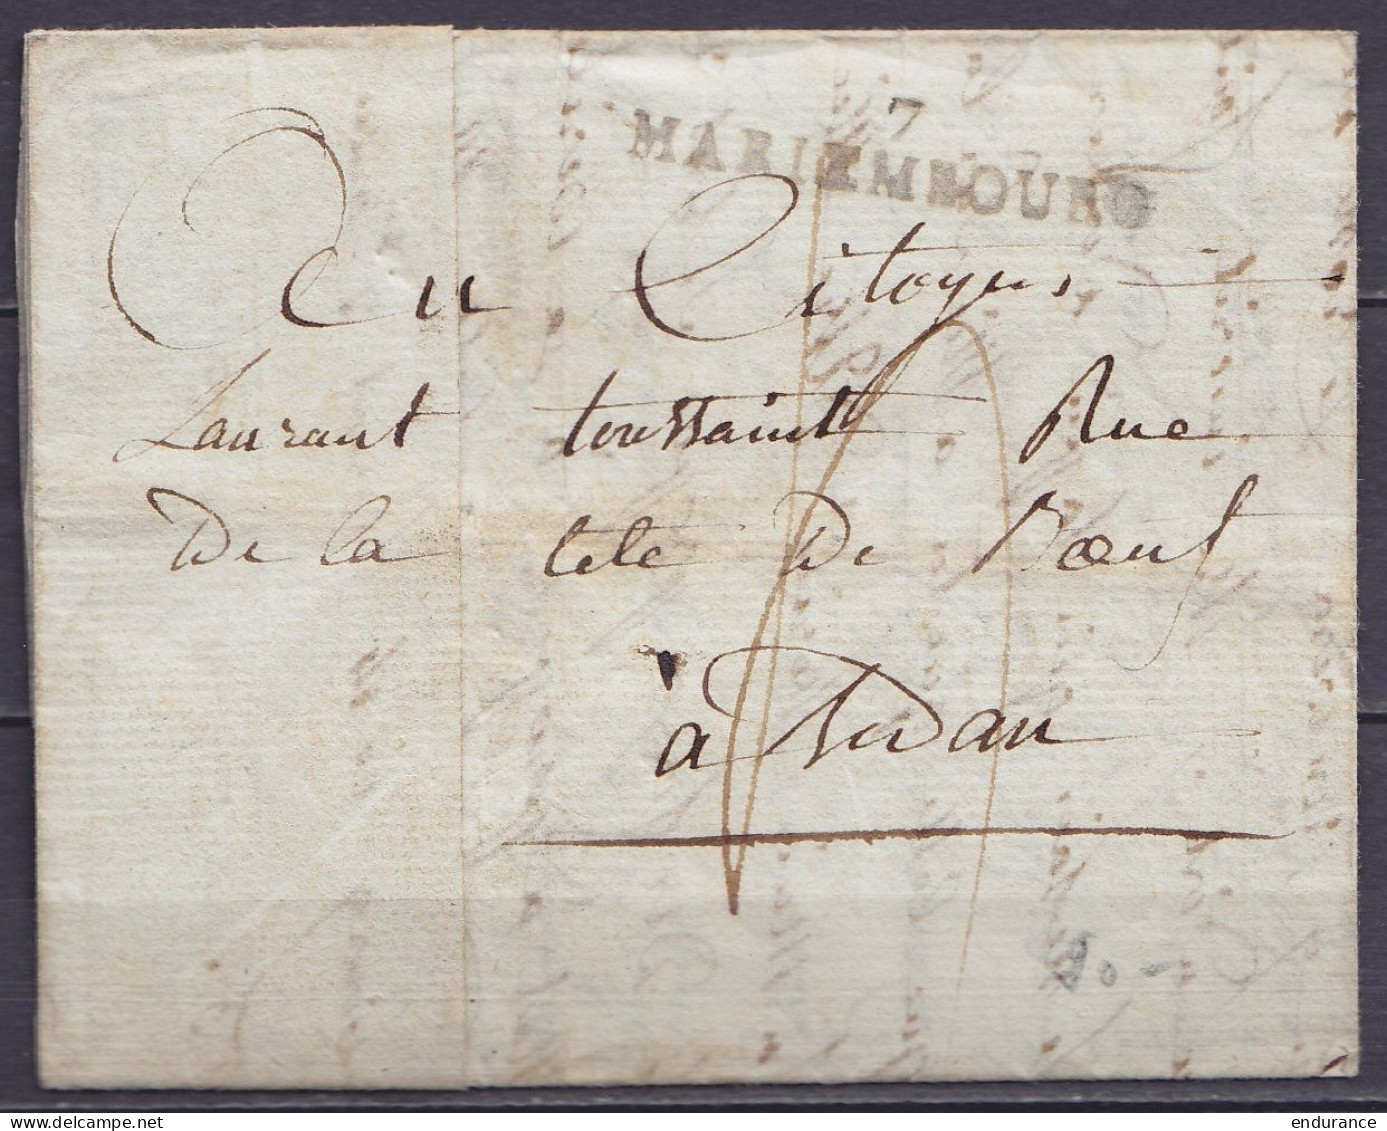 7
MARIEMBOURG
Au Citoyen
Laurant toussaint Rue
De la tete De Boeuf
à Sedan
90 -
endurance